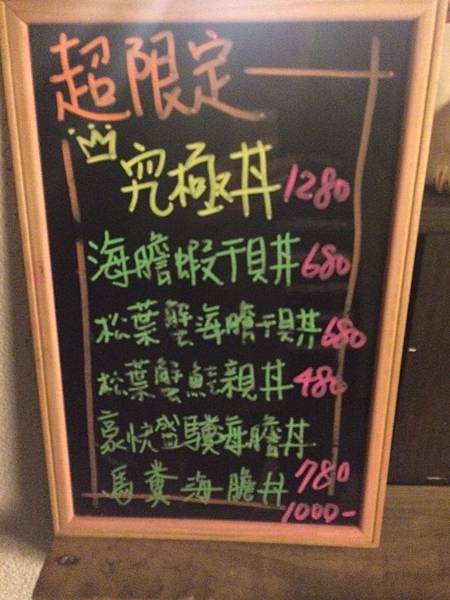 超限定
究極丼 1280
海膽蝦干貝丼 680
松葉蟹海膽干貝丼 680
松葉蟹鮭親丼 480
豪快盛海膽丼
780
馬糞海膽丼
1000-